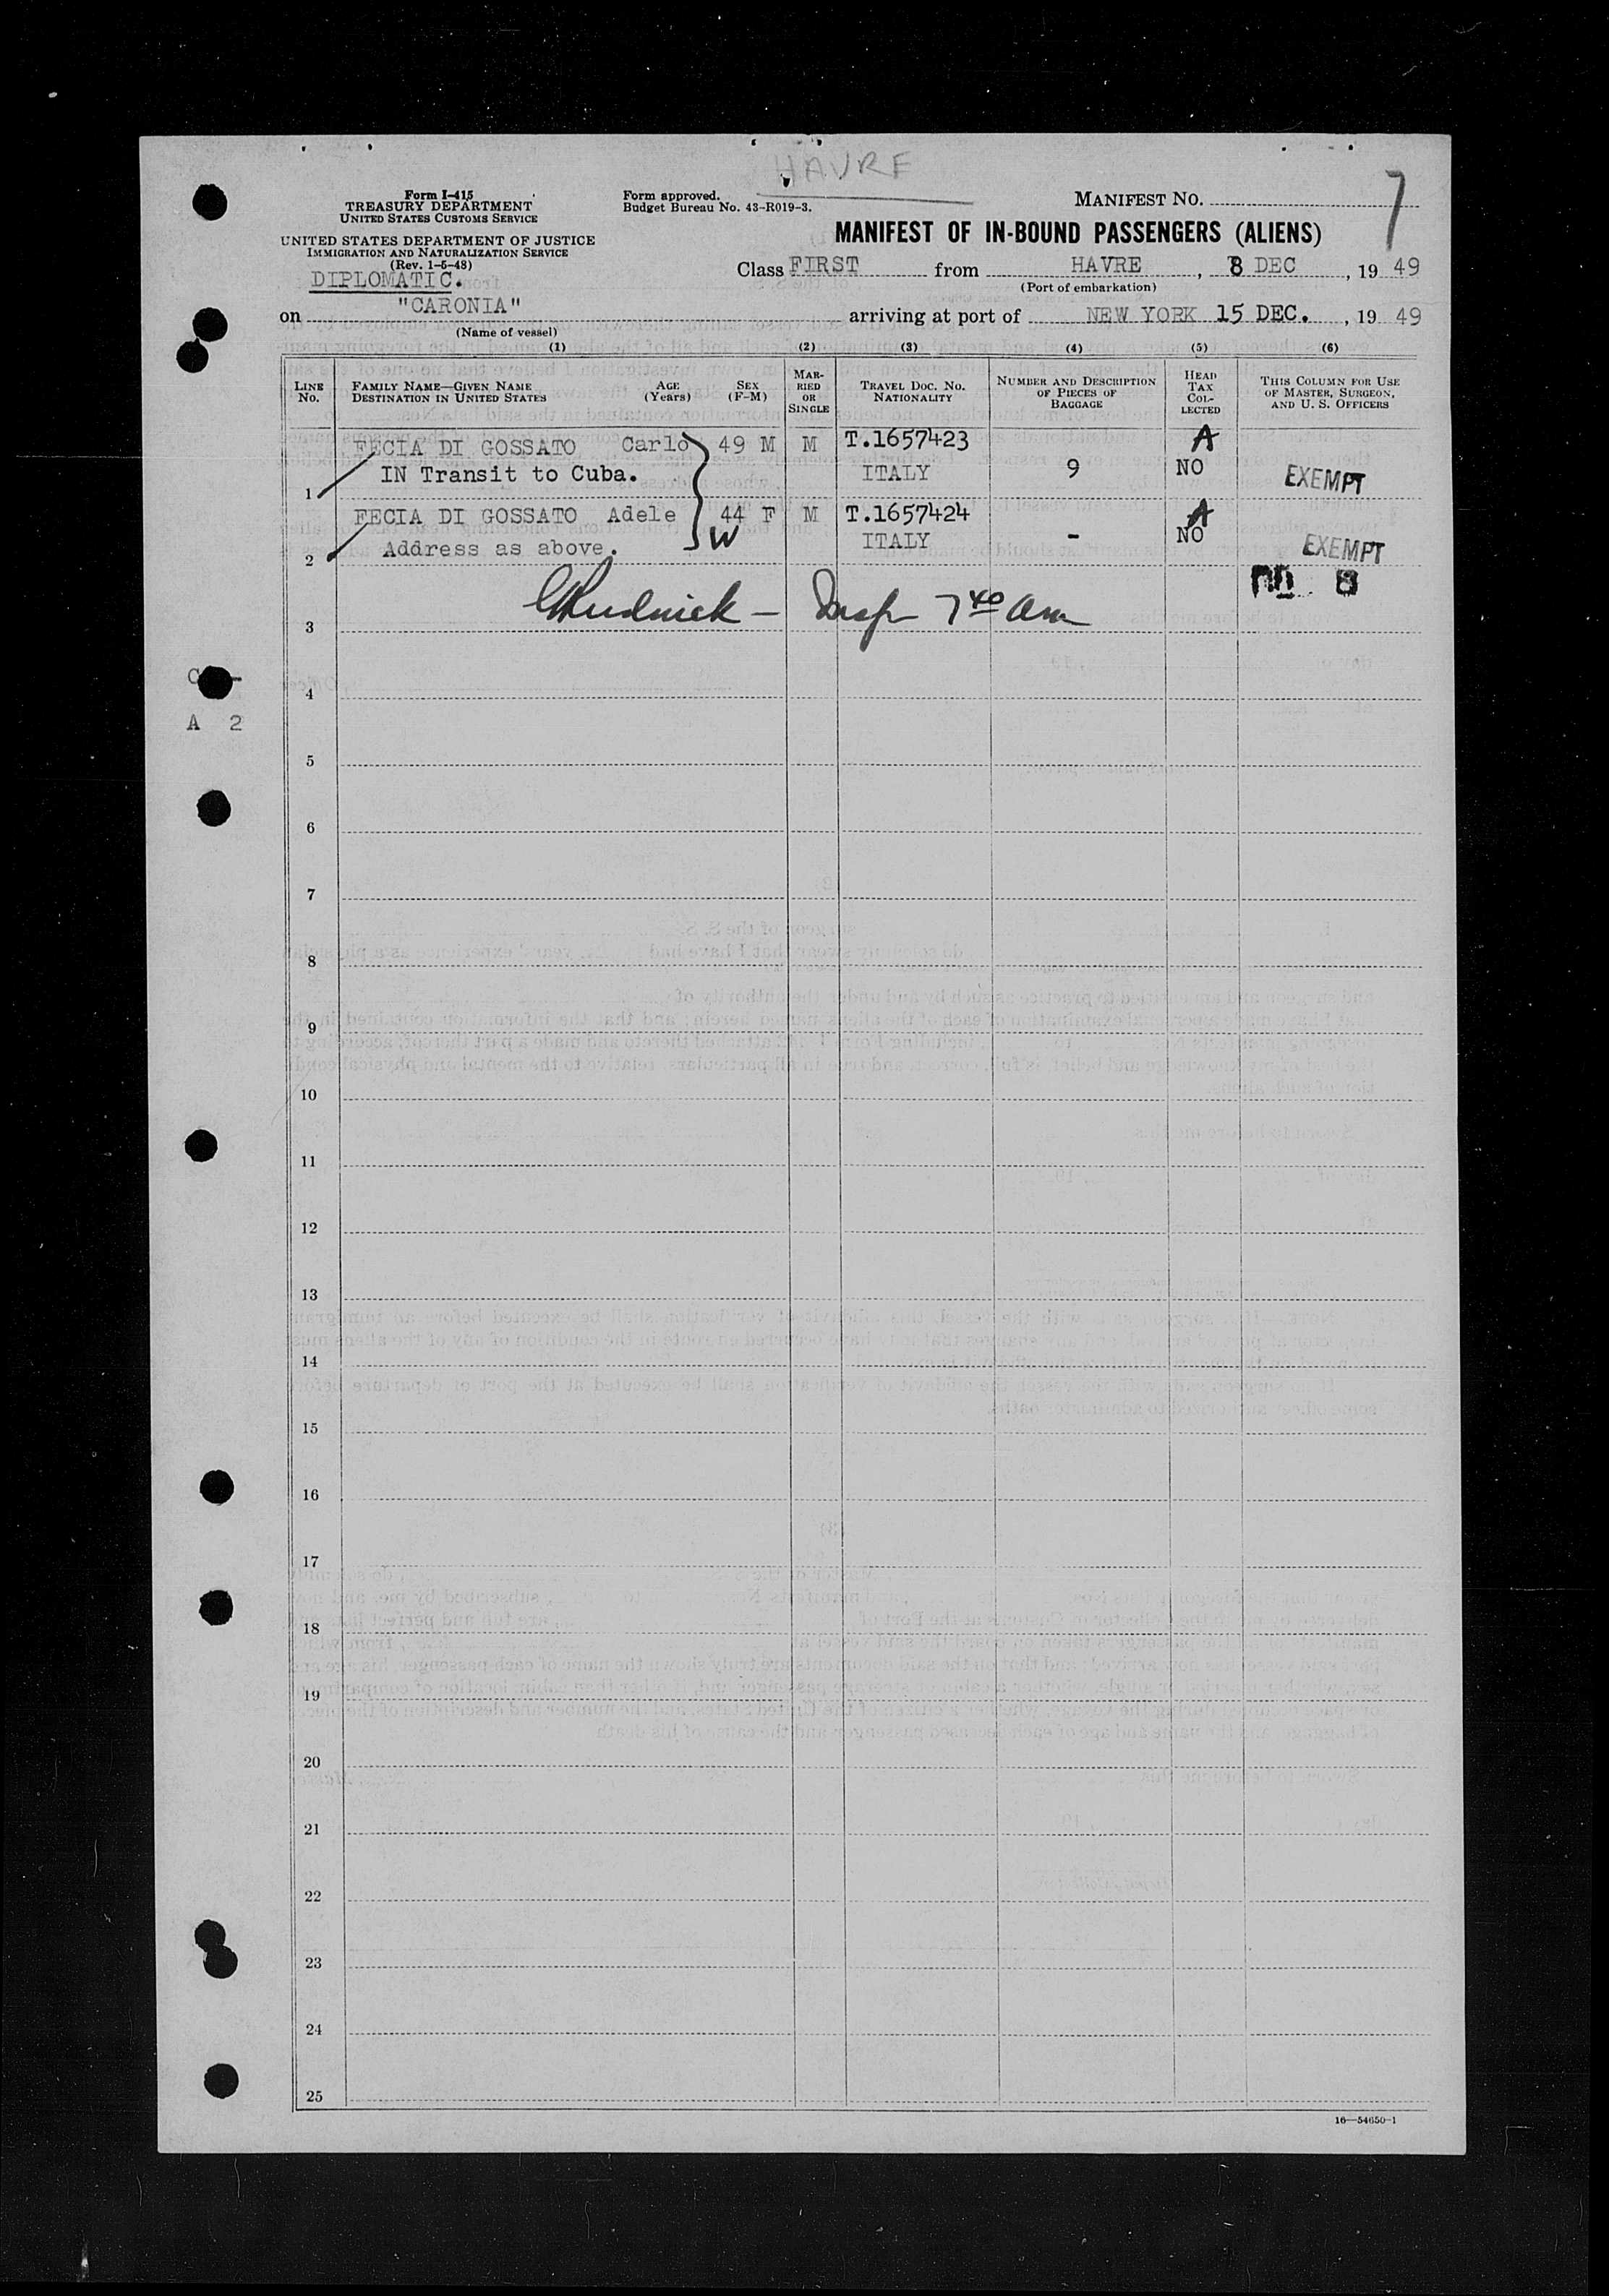 HAVRE
7
Form I-415
TREASURY DEPARTMENT
UNITED STATES CUSTOMS SERVICE
UNITED STATES DEPARTMENT OF JUSTICE
IMMIGRATION AND NATURALIZATION SERVICE
(Rev. 1-5-48)
Form approved.
Budget Bureau No. 43-R019-3.
MANIFEST NO.
MANIFEST OF IN-BOUND PASSENGERS (ALIENS)
DIPLOMATIC.
Class FIRST from HAVRE, 8 DEC, 19 49
(Port of embarkation)
on "CARONIA" arriving at port of NEW YORK 15 DEC., 19 49
(Name of vessel)
(1) (2) (3) (4) (5) (6)
LINE No. FAMILY NAME—GIVEN NAME DESTINATION IN UNITED STATES AGE (Years) SEX (F-M) MARRIED OR SINGLE TRAVEL DOC. NO. NATIONALITY NUMBER AND DESCRIPTION OF PIECES OF BAGGAGE HEAD TAX COLLECTED THIS COLUMN FOR USE OF MASTER, SURGEON, AND U. S. OFFICERS
FECIA DI GOSSATO Carlo 49 M M T.1657423 A
1 IN Transit to Cuba. ITALY 9 NO EXEMPT
FECIA DI GOSSATO Adele 44 F M T.1657424 A
2 Address as above. W ITALY - NO EXEMPT
8
3 Rudnick — Insp 7 40 am
C -
4
A 2
5
6
7
8
9
10
11
12
13
14
15
16
17
18
19
20
21
22
23
24
25
16—54650-1